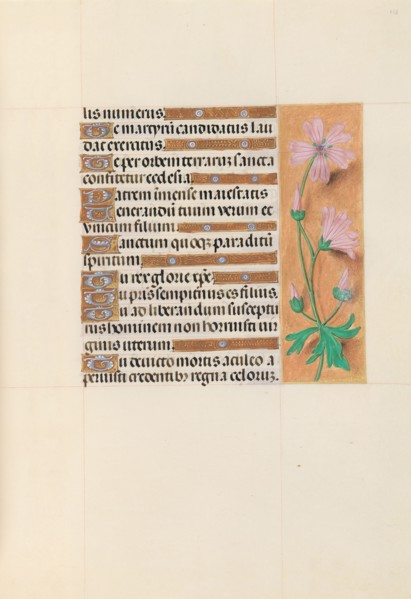 lis numerus.
Te martyrū candidatus lau
dat exercitus.
Te per orbem terrarus sancta
confitetur ecclesia.
Patrem īmense maiestatis
Venerandū tuum verum et
vnicum filium.
Sanctum quoqz paraclitū
spiritum.
Tu rex glorie xpē.
Tu pr̄is sempiternus es filius.
Tu ad liberandum susceptu
rus hominem non horruisti vir
ginis uterum.
Tu deuicto mortis aculeo a
peruisti credentibz regna celorū.